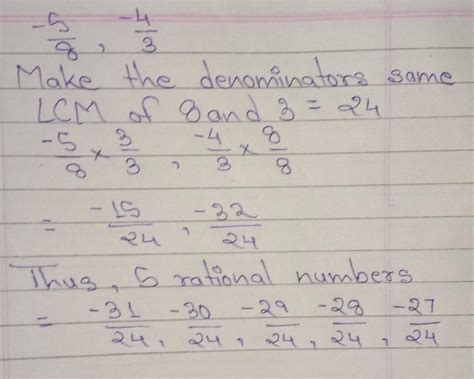 -5/8 , -4/3
Make the denominators same
LCM of 8 and 3 = 24
-5/8 × 3/3 , -4/3 × 8/8
= -15/24 , -32/24
Thus, 5 rational numbers
= -31/24, -30/24, -29/24, -28/24, -27/24